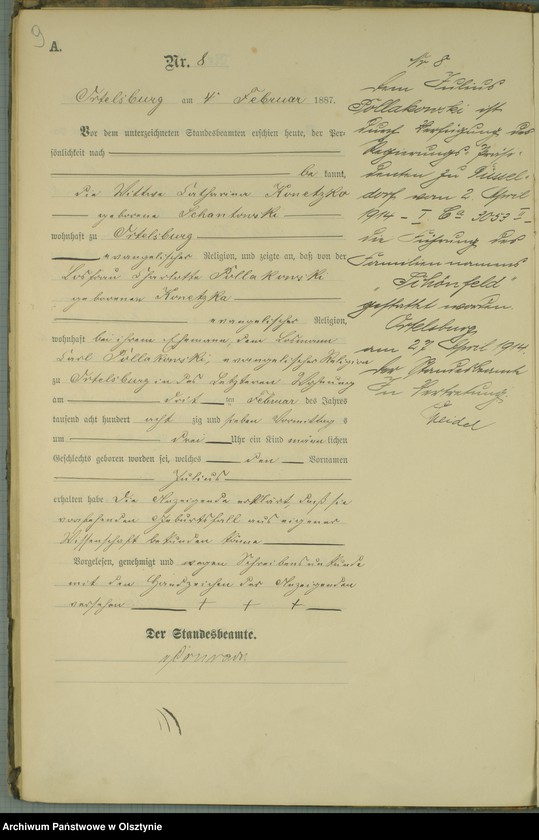 9
A.
Nr. 8
Ortelsburg am 4. Februar 1887.
Vor dem unterzeichneten Standesbeamten erschien heute, der Persönlichkeit nach
be kannt,
die Wittwe Catharina Konetzko
geborene Schantowski
wohnhaft zu Ortelsburg
evangelischer Religion, und zeigte an, daß von der
Losfrau Charlotte Pollakowski
geborenen Konetzka
evangelischer Religion,
wohnhaft bei ihrem Ehemann, dem Losmann
Carl Pollakowski, evangelischer Religion
zu Ortelsburg in des Letzteren Wohnung
am drit ten Februar des Jahres
tausend acht hundert acht zig und sieben Vormittag s
um drei Uhr ein Kind männ lichen
Geschlechts geboren worden sei, welches den Vornamen
Julius
erhalten habe. Die Anzeigende erklärt, daß sie
vorstehenden Geburtsfall aus eigener
Wissenschaft bekunden könne
Vorgelesen, genehmigt und wegen Schreibensunkunde
mit den Handzeichen der Anzeigenden
versehen + + +
Der Standesbeamte.
Nr 8
Dem Julius
Pollakowski ist
durch Verfügung des
Regierungs-Präsi-
denten zu Düssel-
dorf vom 2. April
1914 - I
in Führung des
Familiennamens
"Schönfeld"
gestattet worden.
Ortelsburg,
am 27. April 1914.
Der Standesbeamte
In Vertretung
Archiwum Państwowe w Olsztynie